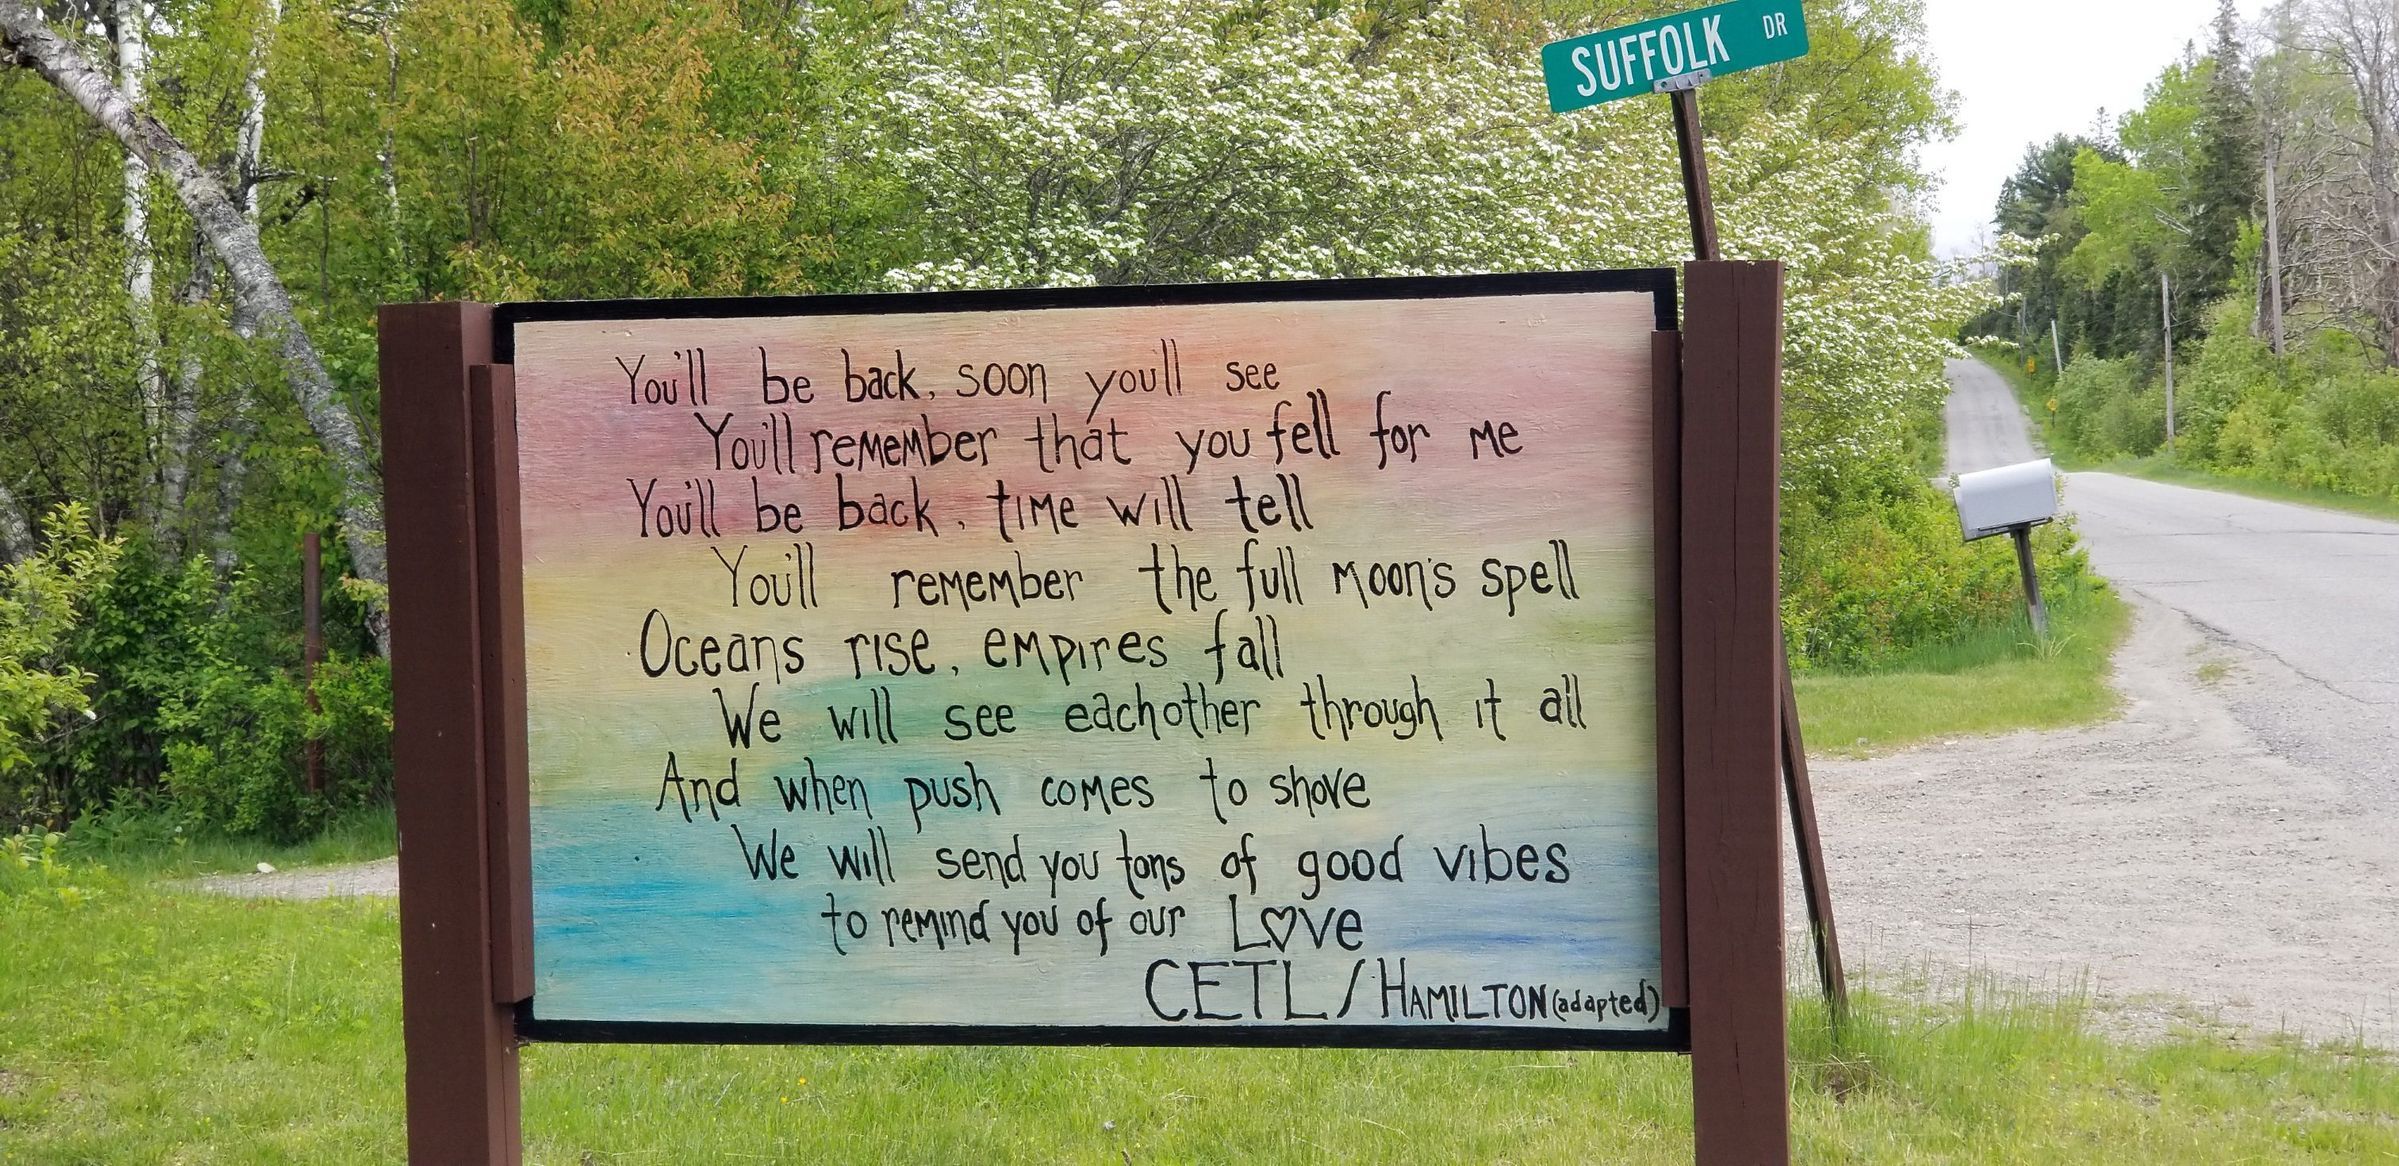 SUFFOLK DR
You'll be back, soon you'll see
You'll remember that you fell for me
You'll be back, time will tell
You'll remember the full moon's spell
Oceans rise, empires fall
We will see eachother through it all
And when push comes to shove
We will send you tons of good vibes
to remind you of our Love
CETL / HAMILTON (adapted)